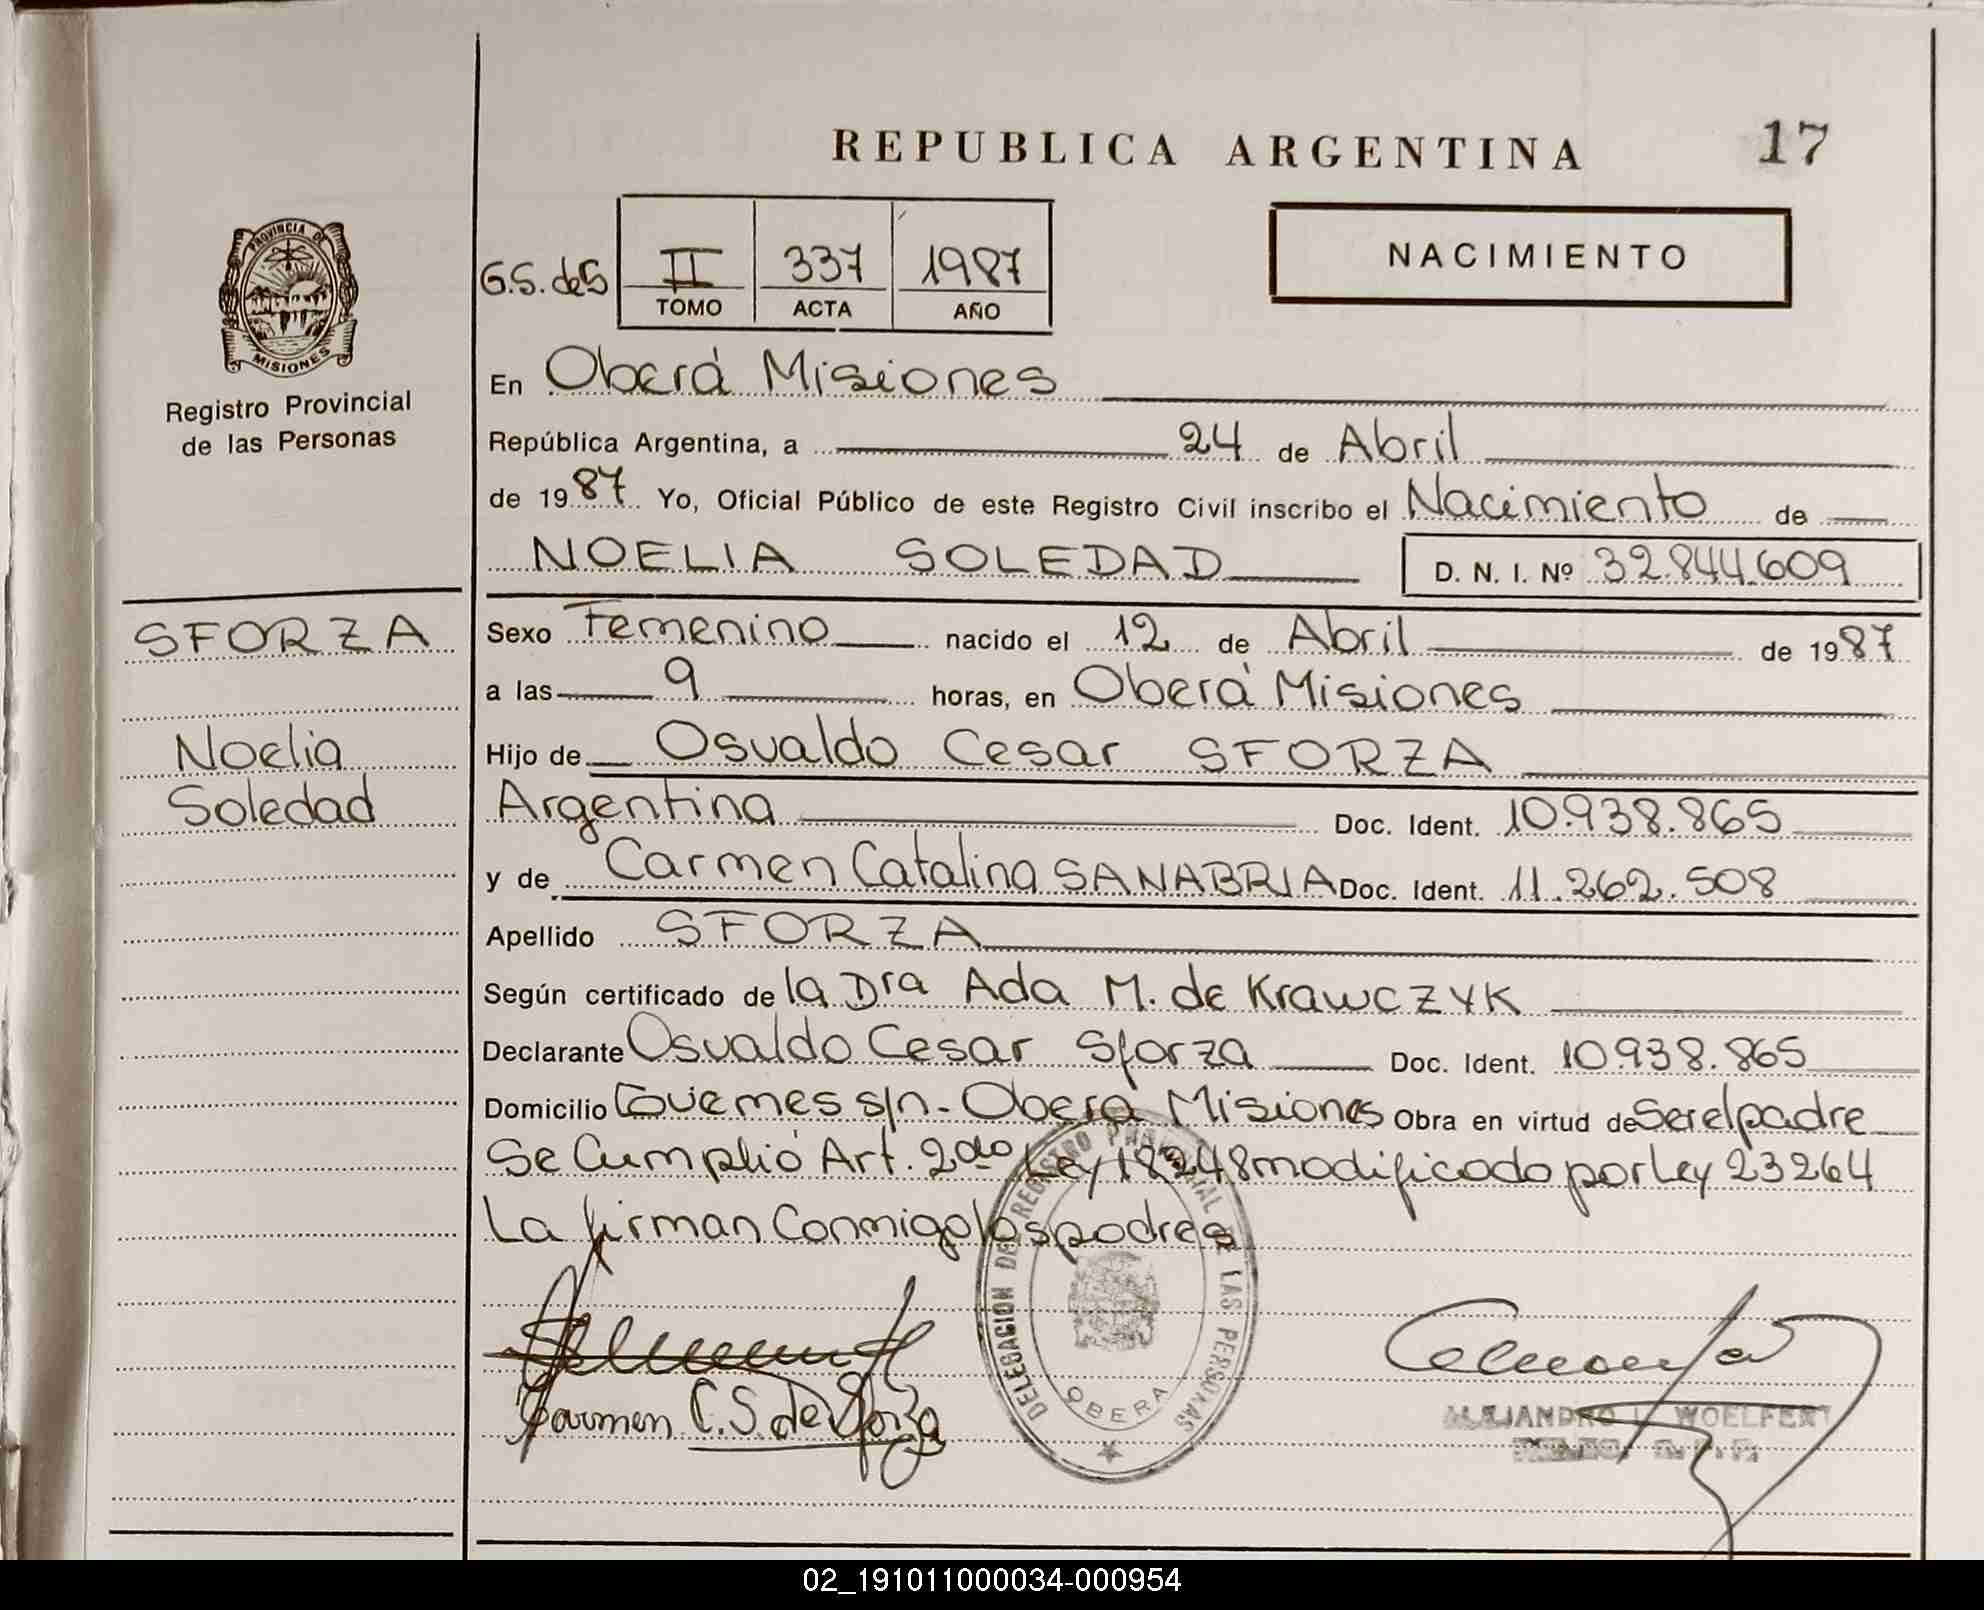 REPUBLICA ARGENTINA
17
PROVINCIA DE
MISIONES
Registro Provincial
de las Personas
G.S. de S
II 337 1987
TOMO ACTA AÑO
NACIMIENTO
En Oberá Misiones
República Argentina, a 24 de Abril
de 1987 Yo, Oficial Público de este Registro Civil inscribo el Nacimiento de
NOELIA SOLEDAD D. N. I. Nº 32.844.609
SFORZA
Noelia
Soledad
Sexo Femenino nacido el 12 de Abril de 1987
a las 9 horas, en Oberá Misiones
Hijo de Osvaldo Cesar SFORZA
Argentina Doc. Ident. 10.938.865
y de Carmen Catalina SANABRIA Doc. Ident. 11.262.508
Apellido SFORZA
Según certificado de la Dra Ada M. de Krawczyk
Declarante Osvaldo Cesar Sforza Doc. Ident. 10.938.865
Domicilio Güemes s/n - Oberá Misiones Obra en virtud de Ser el padre
Se Cumplió Art. 2do Ley 18248 modificado por Ley 23264
La firman Conmigo los padres
DELEGACION DEL REGISTRO PROVINCIAL DE LAS PERSONAS
OBERA
Carmen C. S. de Sforza
ALEJANDRO L. WOELFERT
02_191011000034-000954